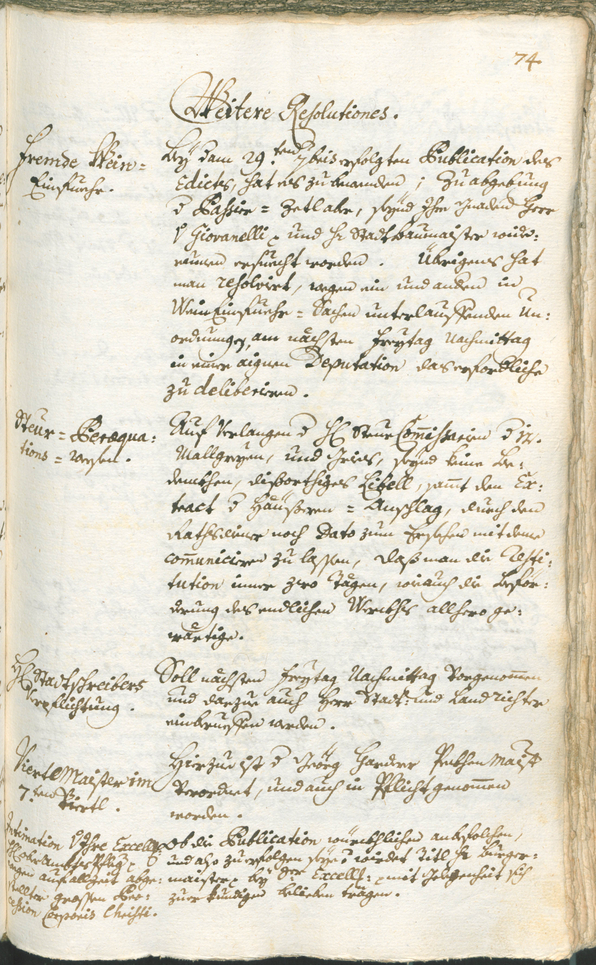 74
Weitere Resolutiones.
Fremde Wein=
Einfuehr.
Bey dem 29.ten 7bris erfolgten Publication des
Edictes, hat es zubewenden; zu abgebung
d Passier= Zetl aber, seynd Ihr Gnaden Herr
v Giovanelli, und H: Stadtbaumaister
ersuecht worden. Übrigens hat
man resolvirt, wegen ein und andern in
Wein Einfuehr= Sachen unterlauffenden Un:
ordnungen, am nächsten Freytag Nachmittag
in einer aignen Deputation das erforderliche
zu deliberieren.
Steur= Peraequa:
tions= wesen.
Auf Verlangen d H Steur Commissarien
und Gries, seynd keine Be:
denkhen, disorthiges Libell, sammt den Ex:
tract d Häußeren= Anschlag, durch den
Rathsdiener noch Dato zum Ersehen mit deme
communiciren zu lassen, daß man die Resti:
tution inner zwo Tägen, wie auch die Befor:
derung des endlichen Werkhs allhero ge:
wärtige.
H Stadtschreibers
Verpflichtung.
Soll nächsten Freytag Nachmittag vorgenommen
und darzue auch Herr Stadt: und Landrichter
einberueffen werden.
Viertlmaister im
7.ten Viertl.
Hierzue ist d Georg
verordnet, und auch in Pflicht genommen
worden.
Intimation Ihre Excell:
wegen auf allzeit abge:
stellter grossen Pro:
cession Corporis Christi.
Ob die Publication würckhlichen anbefolchen,
und also zu erfolgen seye; würdet Titl H: Burger:
maister bey Excell: mit Gelegenheit sich
zuerkundigen belieben tragen.